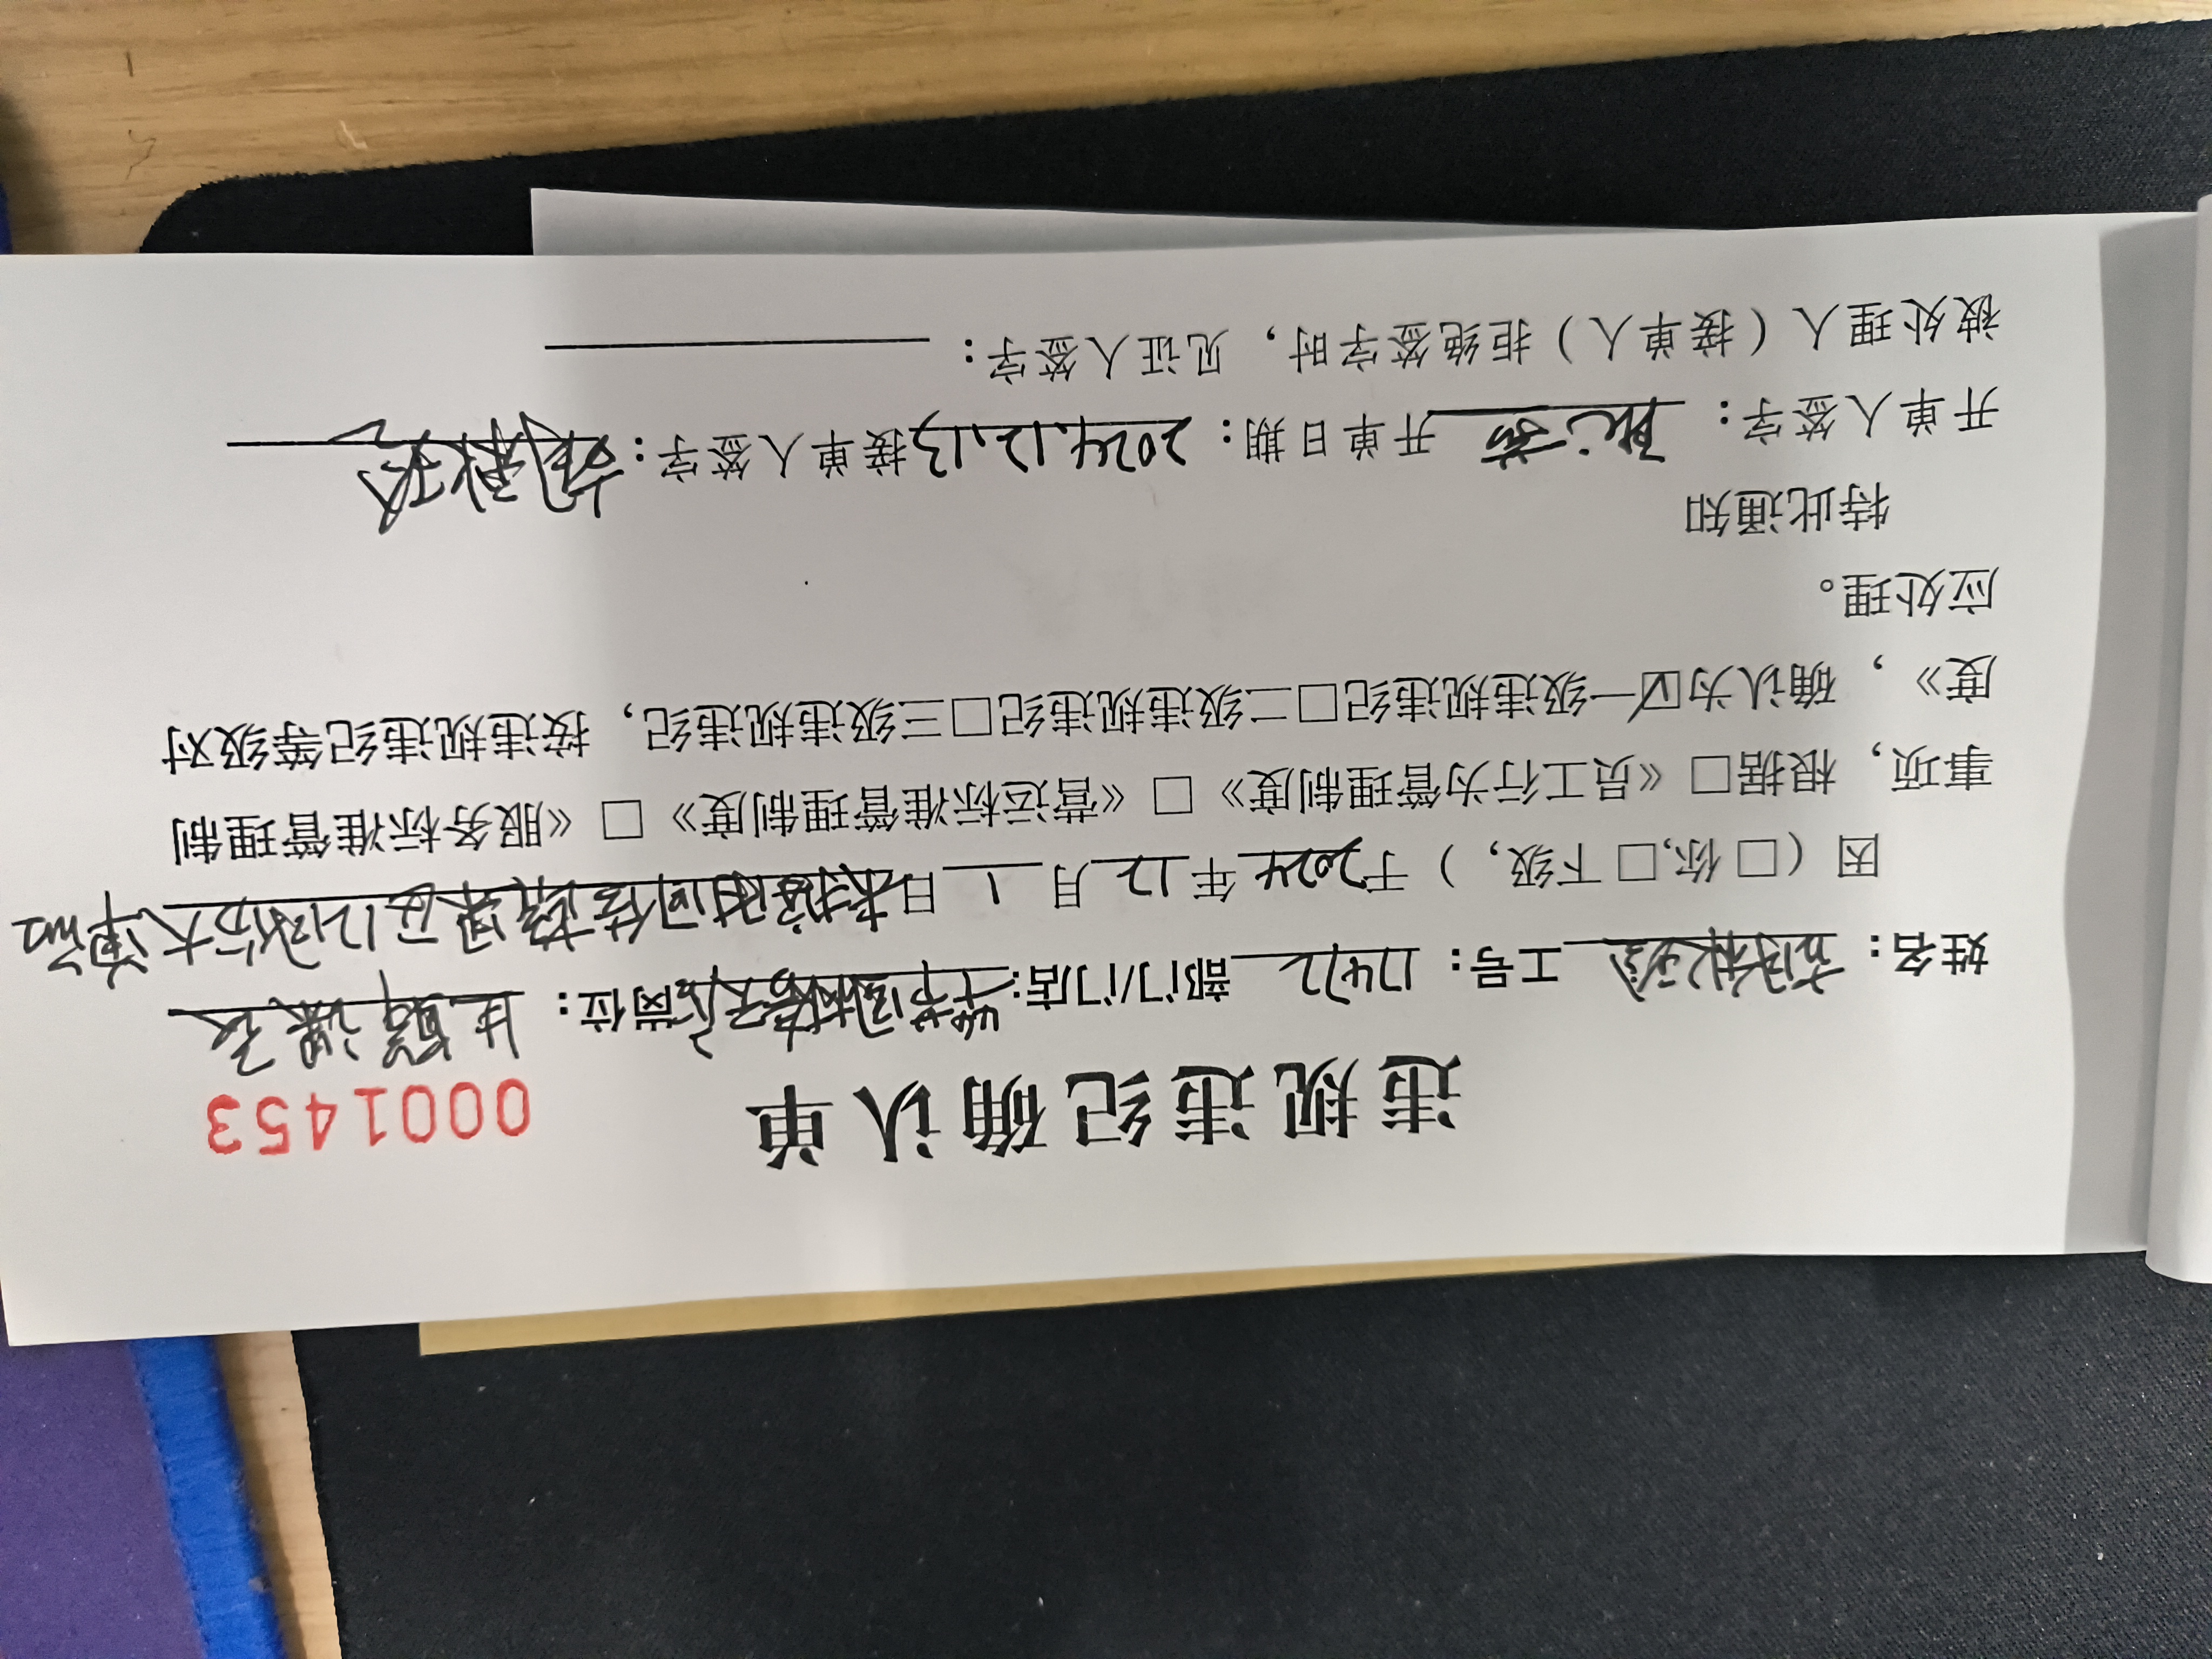 违规违纪确认单
0001453
姓名： 胡秋玲 工号： 17472 部门/门店： 岗位： 生鲜课长
因（□你,□下级,）于2024年12月1日未按时间
事项，根据□《员工行为管理制度》□《营运标准管理制度》□《服务标准管理制
度》，确认为☑一级违规违纪□二级违规违纪□三级违规违纪，按违规违纪等级对
应处理。
特此通知
开单人签字： 开单日期：2024.12.13接单人签字：胡秋玲
被处理人（接单人）拒绝签字时，见证人签字：